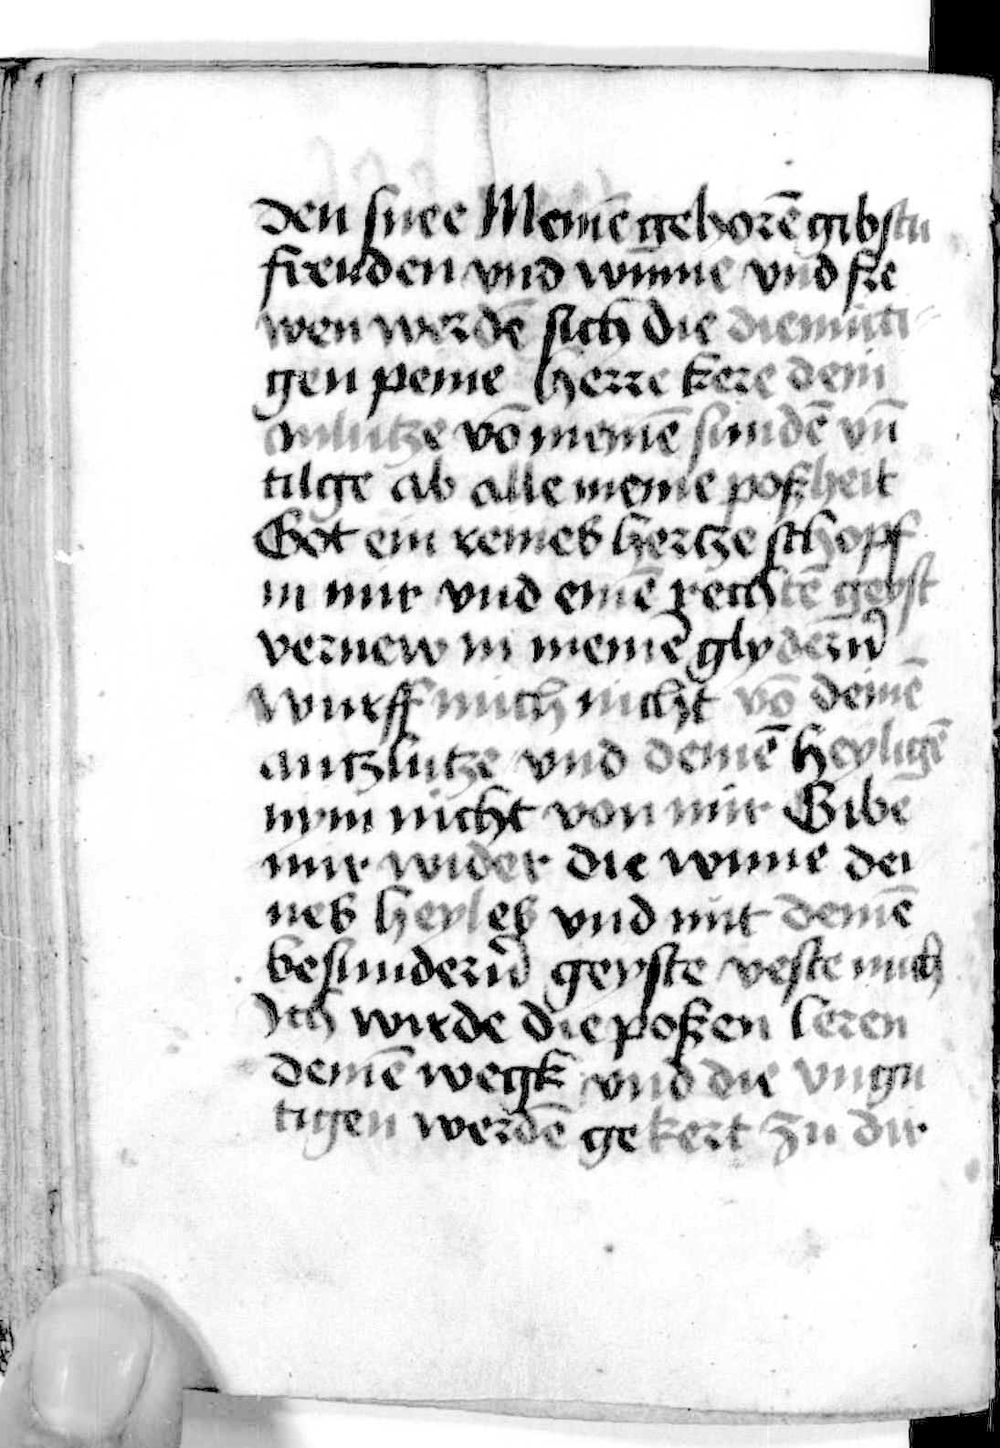 den snee Meinē gehorē gibstu
freuden vnd wūnne vnd fre
wen werdē sich die diemüti
gen peine Herre kere dein
anlutze vō meinē sundē vn̄
tilge ab alle meine poßheit
Got ein reines hertze schopf
in mir vnd einē rechtē geyst
vernew in meinē glydern̄
wurff mich nicht vō deinē
antzlutze vnd deinē heyligē
nym nicht von mir Gibe
mir wider die wnne dei
nes heyles vnd mit deinē
besundern̄ geyste veste mich
Ich wirde die poßen leren
deinē wegk vnd die vngu
tigen werdē gekert zu dir